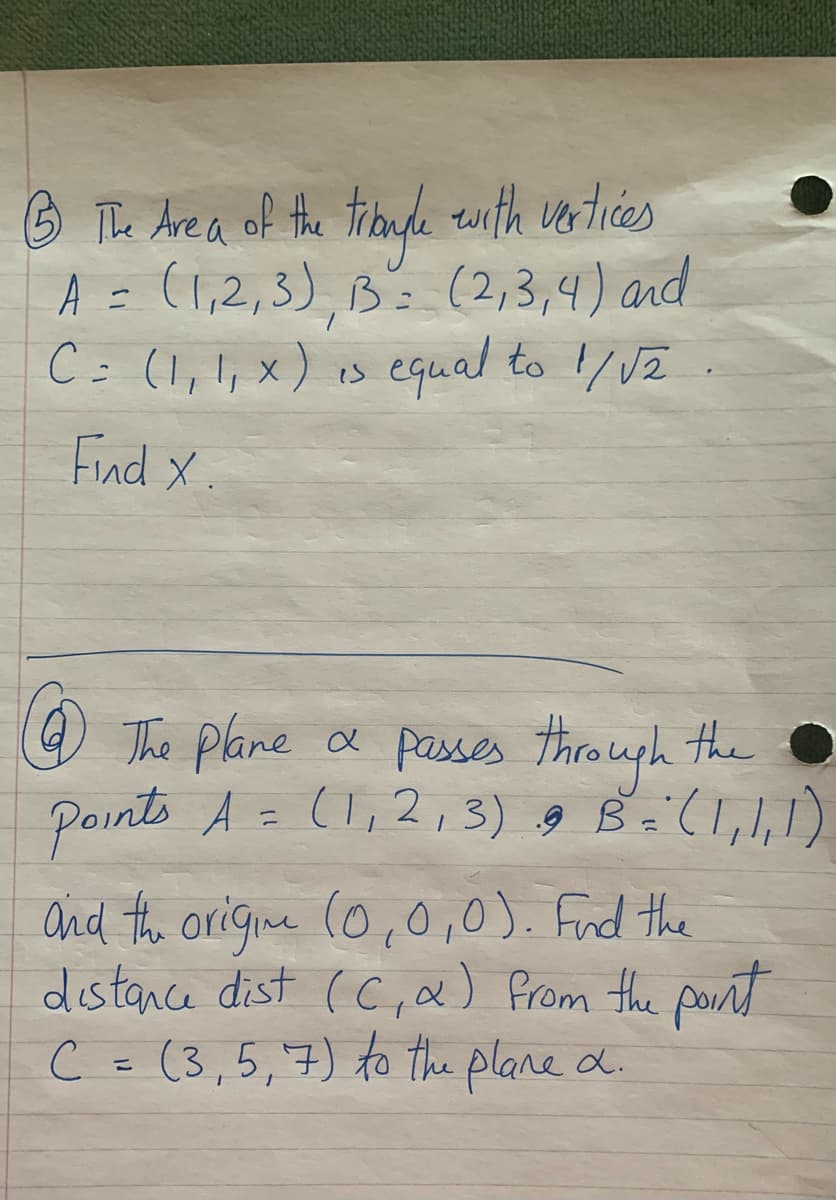 ⑤ The Area of the triangle with vertices
A = (1,2,3), B = (2,3,4) and
C = (1, 1, x) is equal to 1/√2 .
Find x.
⑥ The plane α passes through the
points A = (1, 2, 3) , B = (1,1,1)
and the origine (0,0,0). Find the
distance dist (C, α) from the point
C = (3,5,7) to the plane α.